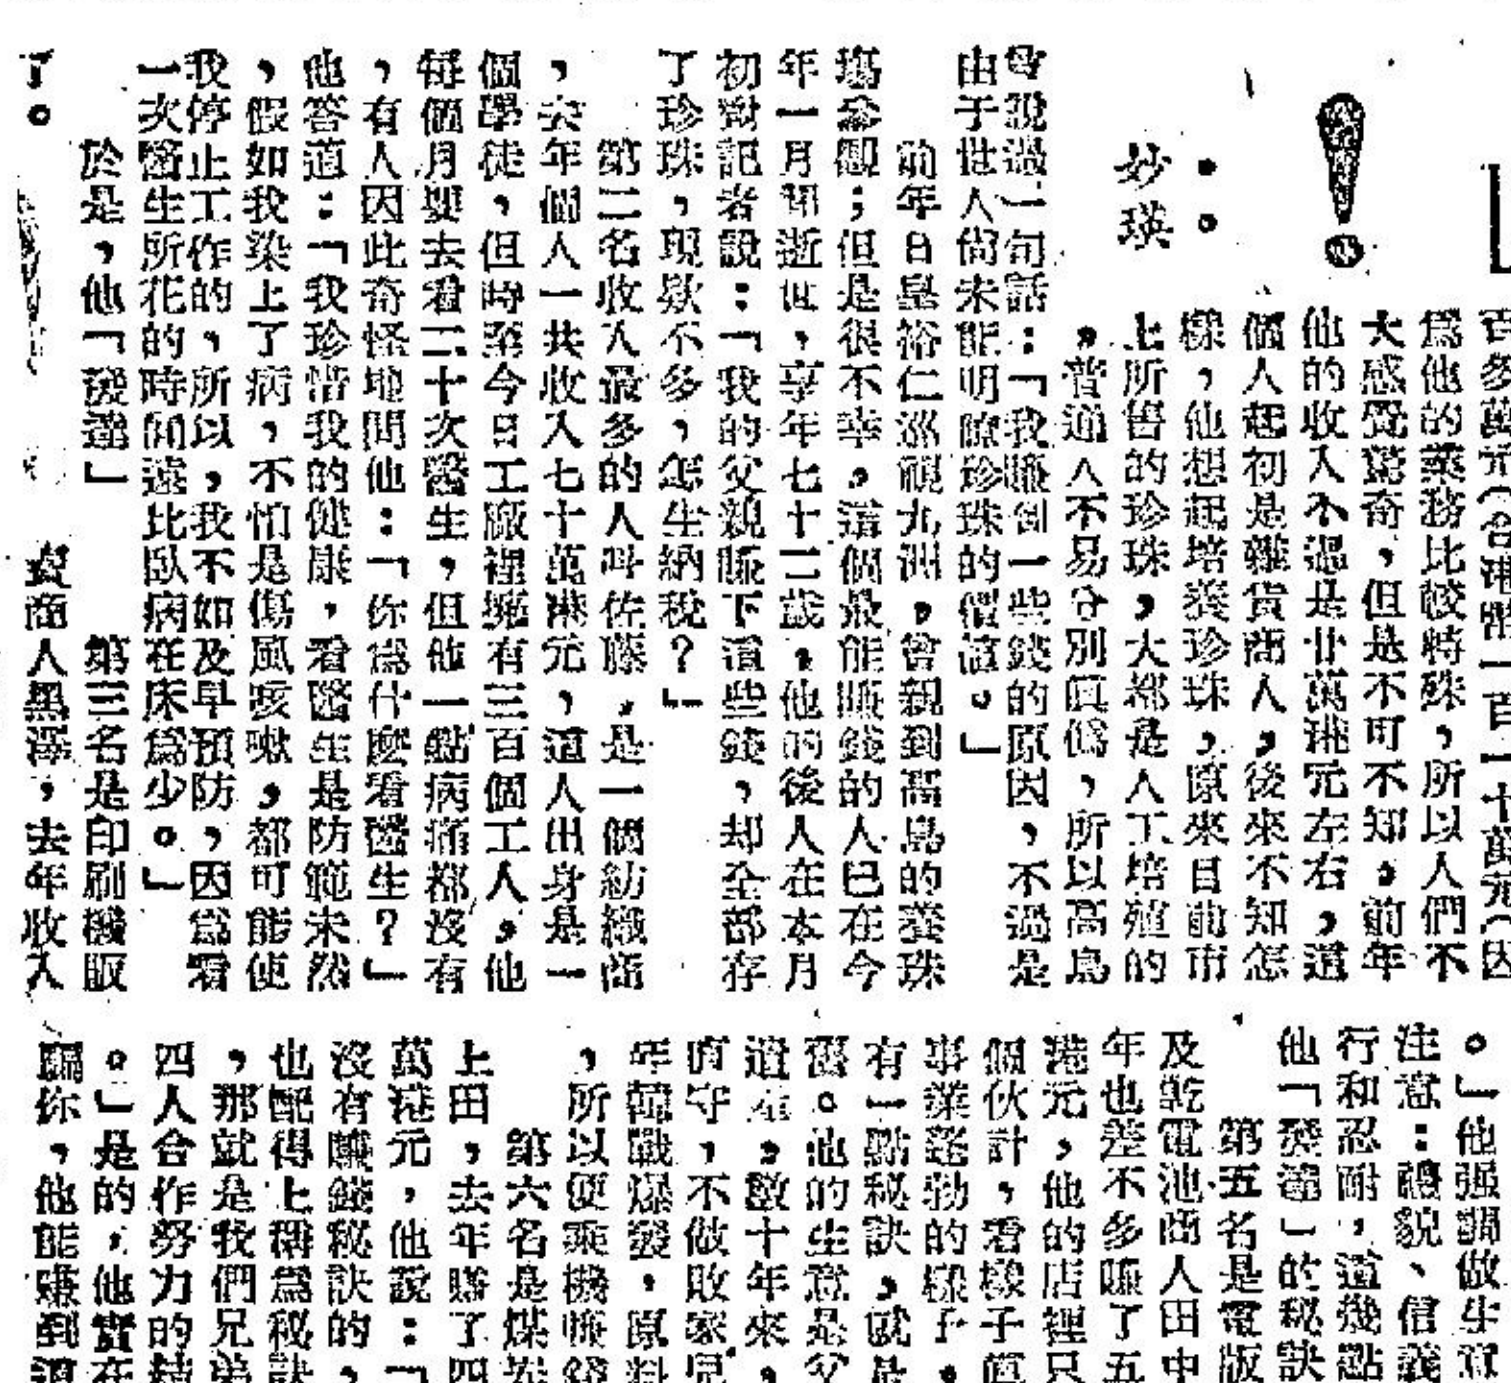 ！
妙瑛
百多萬元(合港幣一百一十萬元(因
爲他的業務比較特殊，所以人們不
大感覺驚奇，但是不可不知，前年
他的收入不過是廿萬港元左右，這
個人起初是雜貨商人，後來不知怎
樣，他想起培養珍珠，原來目前市
上所售的珍珠，大都是人工培殖的
，普通人不易分別眞僞，所以高島
曾說過一句話：「我賺到一些錢的原因，不過是
由于世人尙未能明瞭珍珠的價值。」
前年日皇裕仁巡視九洲，曾親到高島的養珠
塲參觀；但是很不幸，這個最能賺錢的人已在今
年一月間逝世，享年七十二歲，他的後人在本月
初對記者說：「我的父親賺下這些錢，却全部存
了珍珠，現欵不多，怎生納稅？」
第二名收入最多的人叫佐藤，是一個紡織商
，去年個人一共收入七十萬港元，這人出身是一
個學徒，但時至今日工廠裡擁有三百個工人，他
每個月要去看二十次醫生，但他一點病痛都沒有
，有人因此奇怪地問他：「你爲什麼看醫生？」
他答道：「我珍惜我的健康，看醫生是防範未然
，假如我染上了病，不怕是傷風咳嗽，都可能使
我停止工作的，所以，我不如及早預防，因爲看
一次醫生所花的時間遠比臥病在床爲少。」
於是，他「發達」
了。
第三名是印刷機販
賣商人黑澤，去年收入
。」他强調做生意
注意：禮貌、信義
行和忍耐，這幾點
他「發達」的秘訣
第五名是電版
及乾電池商人田中
年也差不多賺了五
港元，他的店裡只
個伙計，看樣子眞
事業蓬勃的樣子，
有一點秘訣，就是
舊。他的生意是父
遺產，數十年來，
守，不做敗家兒
年韓戰爆發，原料
，所以便乘機賺錢
第六名是煤炭
上田，去年賺了四
萬港元，他說：「
沒有賺錢秘訣的，
也配得上稱爲秘訣
，那就是我們兄弟
四人合作努力的結
。」是的，他實在
騙你，他能賺到這